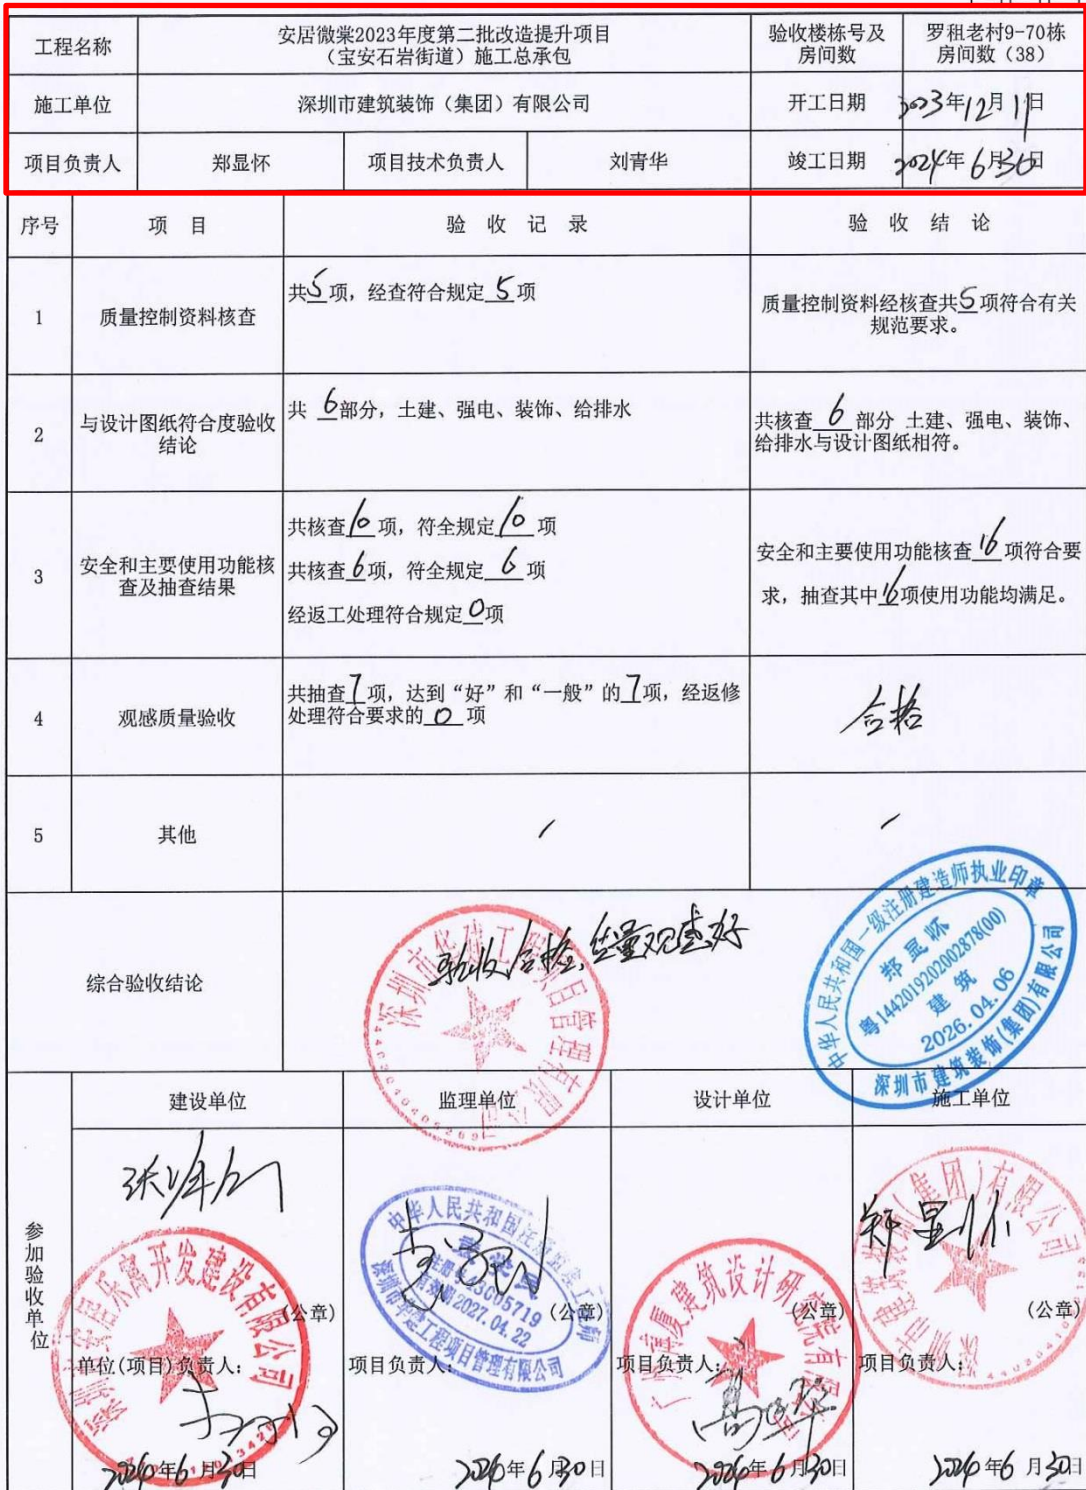 工程名称
安居微棠2023年度第二批改造提升项目
（宝安石岩街道）施工总承包
验收楼栋号及
房间数
罗租老村9-70栋
房间数（38）
施工单位
深圳市建筑装饰（集团）有限公司
开工日期
2023年12月11日
项目负责人
郑显怀
项目技术负责人
刘青华
竣工日期
2024年6月30日
序号
项 目
验 收 记 录
验 收 结 论
1
质量控制资料核查
共5项，经查符合规定5项
质量控制资料经核查共5项符合有关
规范要求。
2
与设计图纸符合度验收
结论
共 6部分，土建、强电、装饰、给排水
共核查6 部分 土建、强电、装饰、
给排水与设计图纸相符。
3
安全和主要使用功能核
查及抽查结果
共核查10项，符全规定10项
共核查6项，符全规定6项
经返工处理符合规定0项
安全和主要使用功能核查16项符合要
求，抽查其中16项使用功能均满足。
4
观感质量验收
共抽查7项，达到“好”和“一般”的7项，经返修
处理符合要求的0项
合格
5
其他
/
/
综合验收结论
验收合格，质量观感好
中华人民共和国一级注册建造师执业印章
郑显怀
粤1442019202002878(00)
建筑
2026.04.06
深圳市建筑装饰(集团)有限公司
参加验收单位
建设单位
监理单位
设计单位
施工单位
郑显怀
(公章)
(公章)
(公章)
(公章)
单位(项目)负责人:
项目负责人:
项目负责人:
项目负责人:
有效期2027.04.22
年6月30日
年6月30日
年6月30日
年6月30日